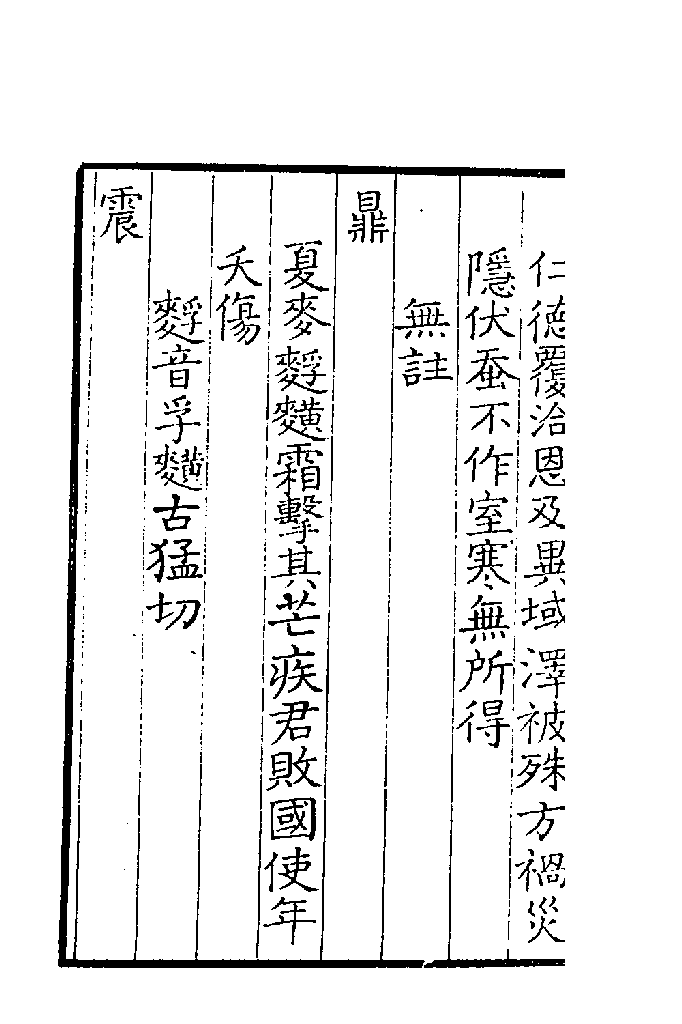 仁徳覆洽恩及異域澤被殊方禍災
隱伏蚕不作室寒無所得
無註
鼎
夏麥麱䵃霜擊其芒疾君敗國使年
夭傷
麱音孚䵃古猛切
震